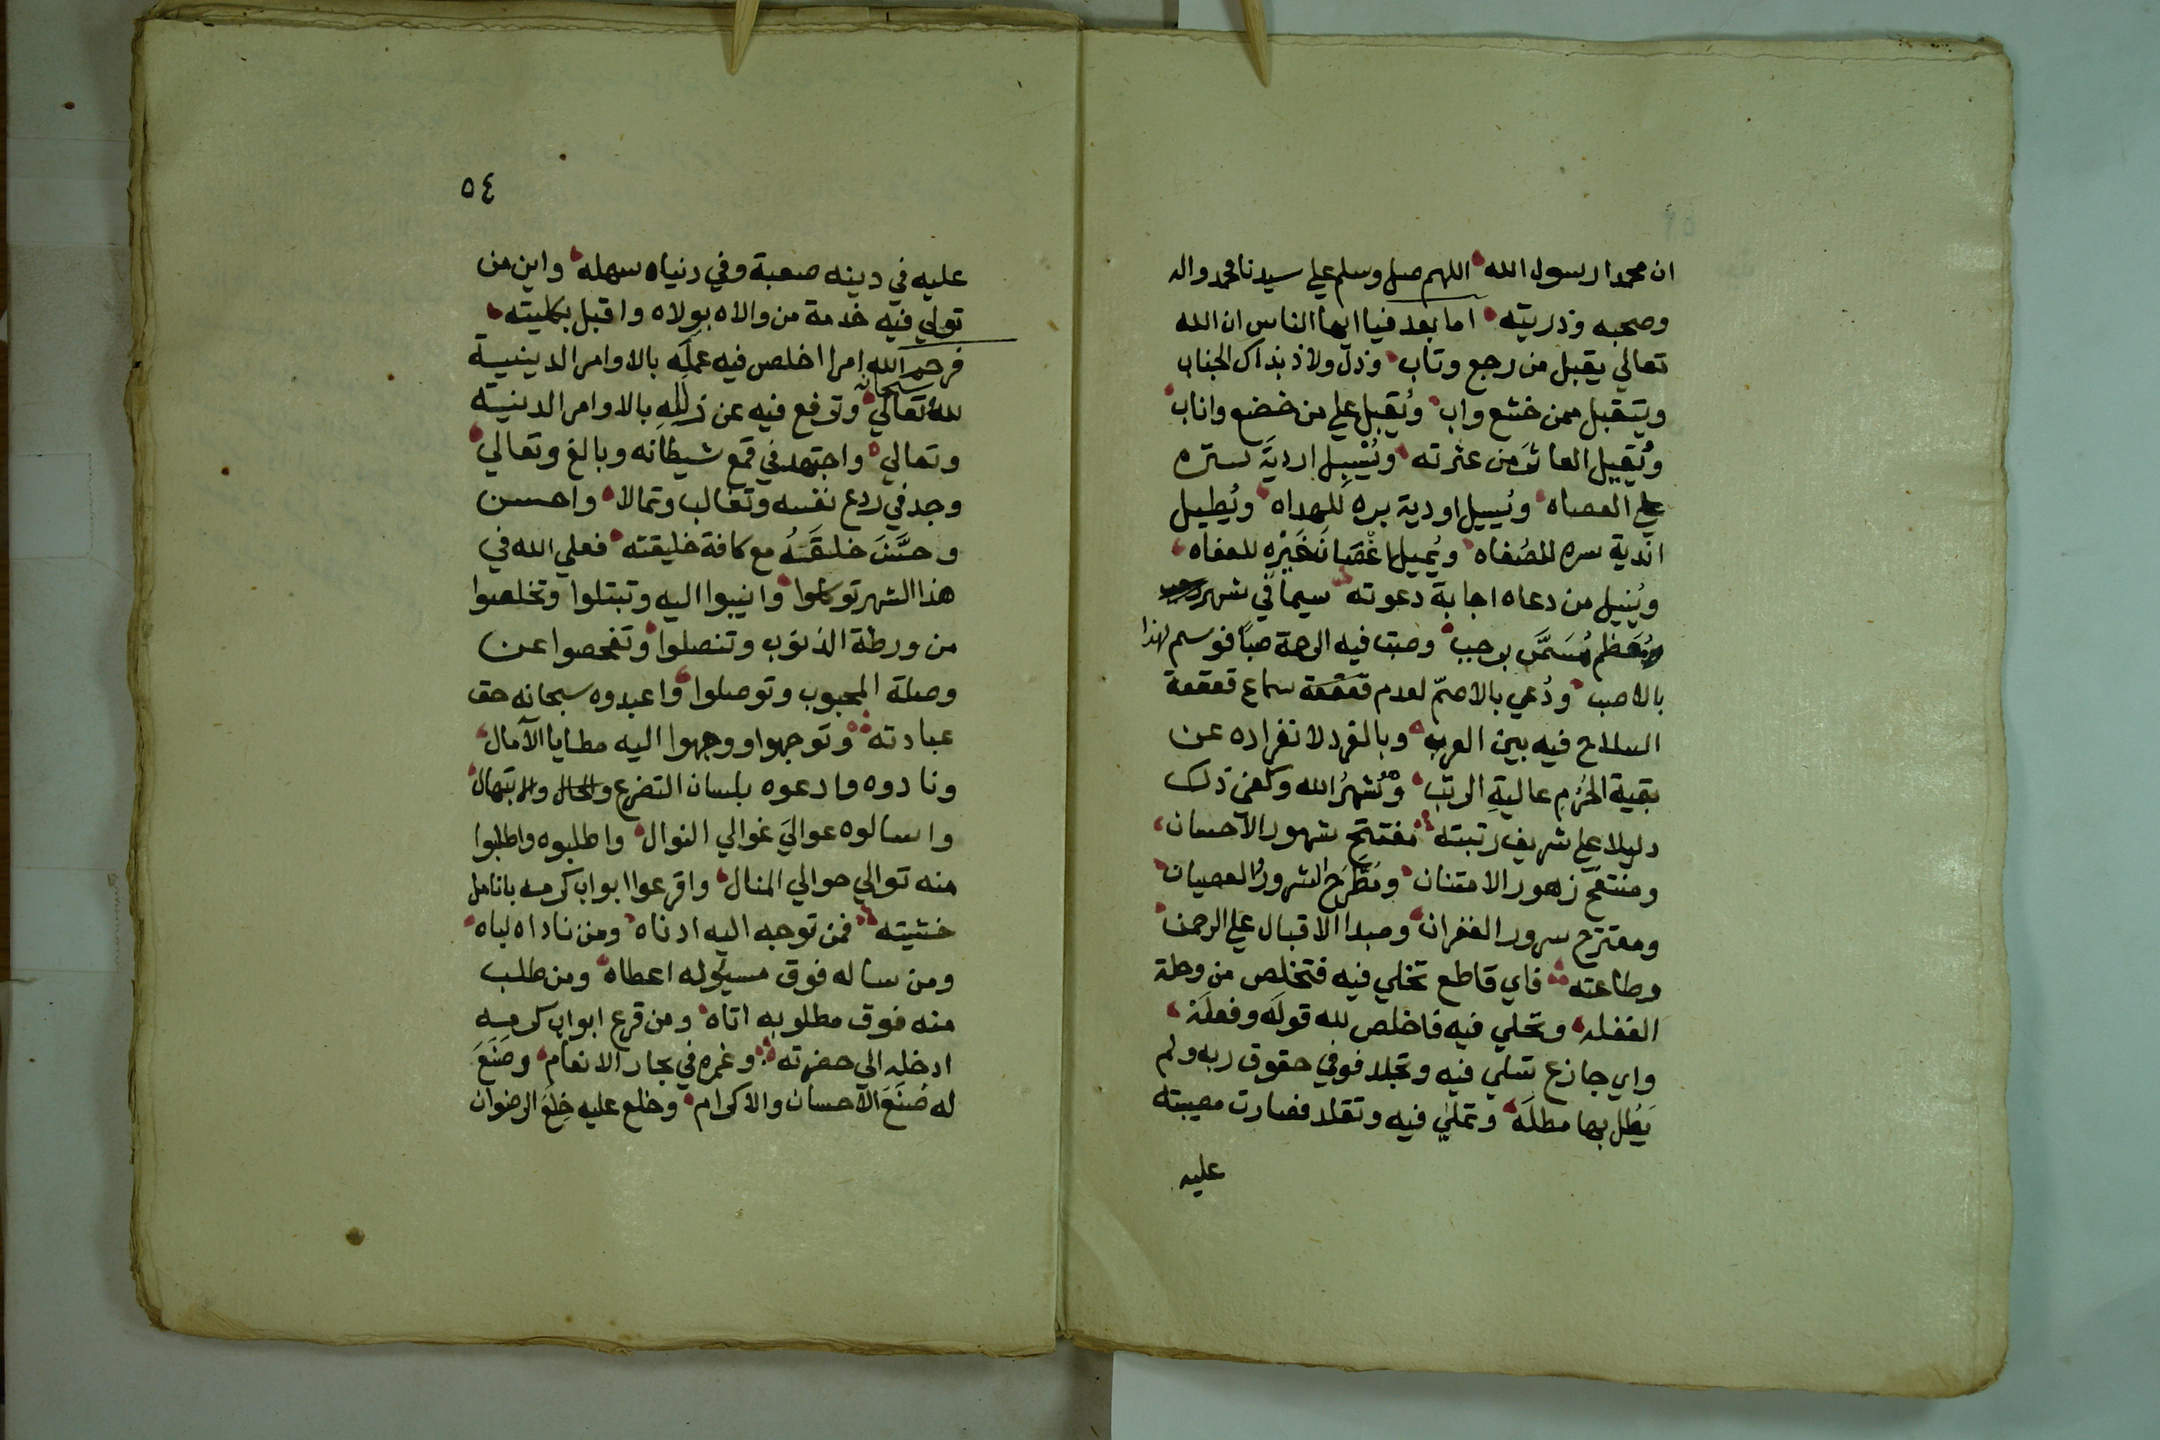 ان محمدا رسول الله اللهم صل وسلم علي سيدنا محمد واله
وصحبه وذريته اما بعد فيا ايها الناس ان الله
تعالي يقبل من رجع وتاب وذل ولاذ بذاك الجناب
ويتقبل ممن خشع واب ويُقبل علي من خضع واناب
ويُقيل العاثر من عثرته ويُسْبِل اردية ستره
علي العصاه ويُسيل اودية بره للهداه ويُطيل
اندية سره للصُفاه ويُميل اغصان خَيْرِه للعفاه
ويُنيل من دعاه اجابة دعوته سيما في شهر
مُعَظم مُسَمَّي برجب وصبت فيه الرحمة صبا فوسم لهذا
بالاصب ودُعي بالاصمّ لعدم قعقعة سماع قعقعة
السلاح فيه بين العرب وبالفرد لانفراده عن
بقية الحُرُم عالية الرتب وشهرُ الله وكفي ذلك
دليلا علي شريف رتبته مفتتح شهور الاحسان
ومنتفح زهور الامتنان ومُطَّرَح الشرور العصيان
ومقترح سرور الغفران ومبدا الاقبال علي الرحمن
وطاعته فاي قاطع تخلي فيه فتخلص من وحلة
الغفله وتحلي فيه فاخلص لله قولَه وفعلَه
واي جازع تسلي فيه وتجلد فوفي حقوق ربه ولم
يَطُل بها مطلَه وتملي فيه وتقلد فصارت مصيبته
عليه
٥٤
عليه في دينه صعبة وفي دنياه سهله واين من
تولي فيه خدمة من والاه بولاه واقبل بكليته
فرحم الله امرا اخلص فيه عملَه بالاوامر الدينية
لله سبحانه تعالي وترفع فيه عن زللِهِ بالاوامر الدينية
وتعالي واجتهد في قمع شيطانه وبالغ وتعالي
وجد في ردع نفسه وتغالب وتمالا واحسن
وحسَّنَ خليقَتَهُ مع كافة خليقته فعلي الله في
هذا الشهر توكلوا وانيبوا اليه وتبتلوا وتخلصوا
من ورطة الذنوب وتنصلوا وتفحصوا عن
وصلة المحبوب وتوصلوا واعبدوه سبحانه حق
عبادته وتوجهوا ووجهوا اليه مطايا الآمال
ونادوه وادعوه بلسان التضرع والحال والابتهال
واسالوه عواليَ غوالي النوال واطلبوه واطلبوا
منه توالي حوالي المنال واقرعوا ابواب كرمه بانامل
خشيته فمن توجه اليه ادناه ومن ناداه لباه
ومن ساله فوق مسيوله اعطاه ومن طلب
منه فوق مطلوبه اتاه ومن قرع ابواب كرمه
ادخله الي حضرته وغمره في بحار الانعام وصَنَعَ
له صُنَعَ الاحسان والاكرام وخلع عليه خِلَعَ الرضوان